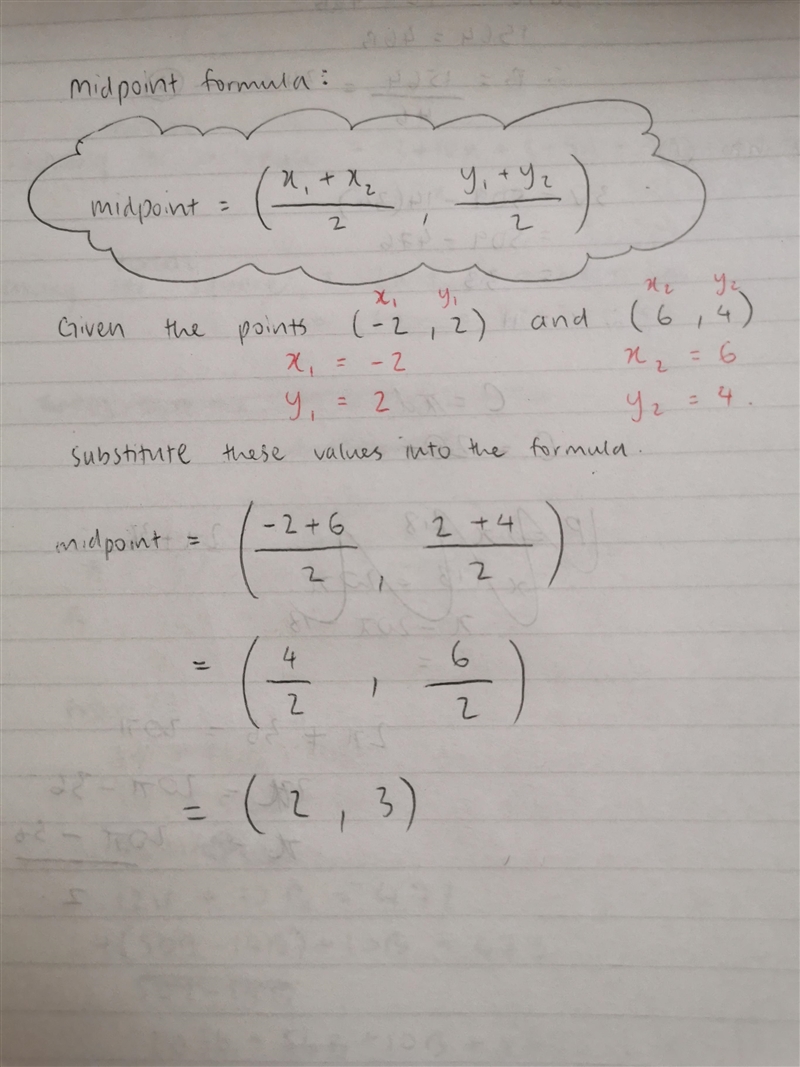 midpoint formula:
midpoint = ( x₁ + x₂ / 2 , y₁ + y₂ / 2 )
x₁ y₁ x₂ y₂
Given the points (-2 , 2) and (6 , 4)
x₁ = -2 x₂ = 6
y₁ = 2 y₂ = 4.
substitute these values into the formula.
midpoint = ( -2 + 6 / 2 , 2 + 4 / 2 )
= ( 4 / 2 , 6 / 2 )
= ( 2 , 3 )